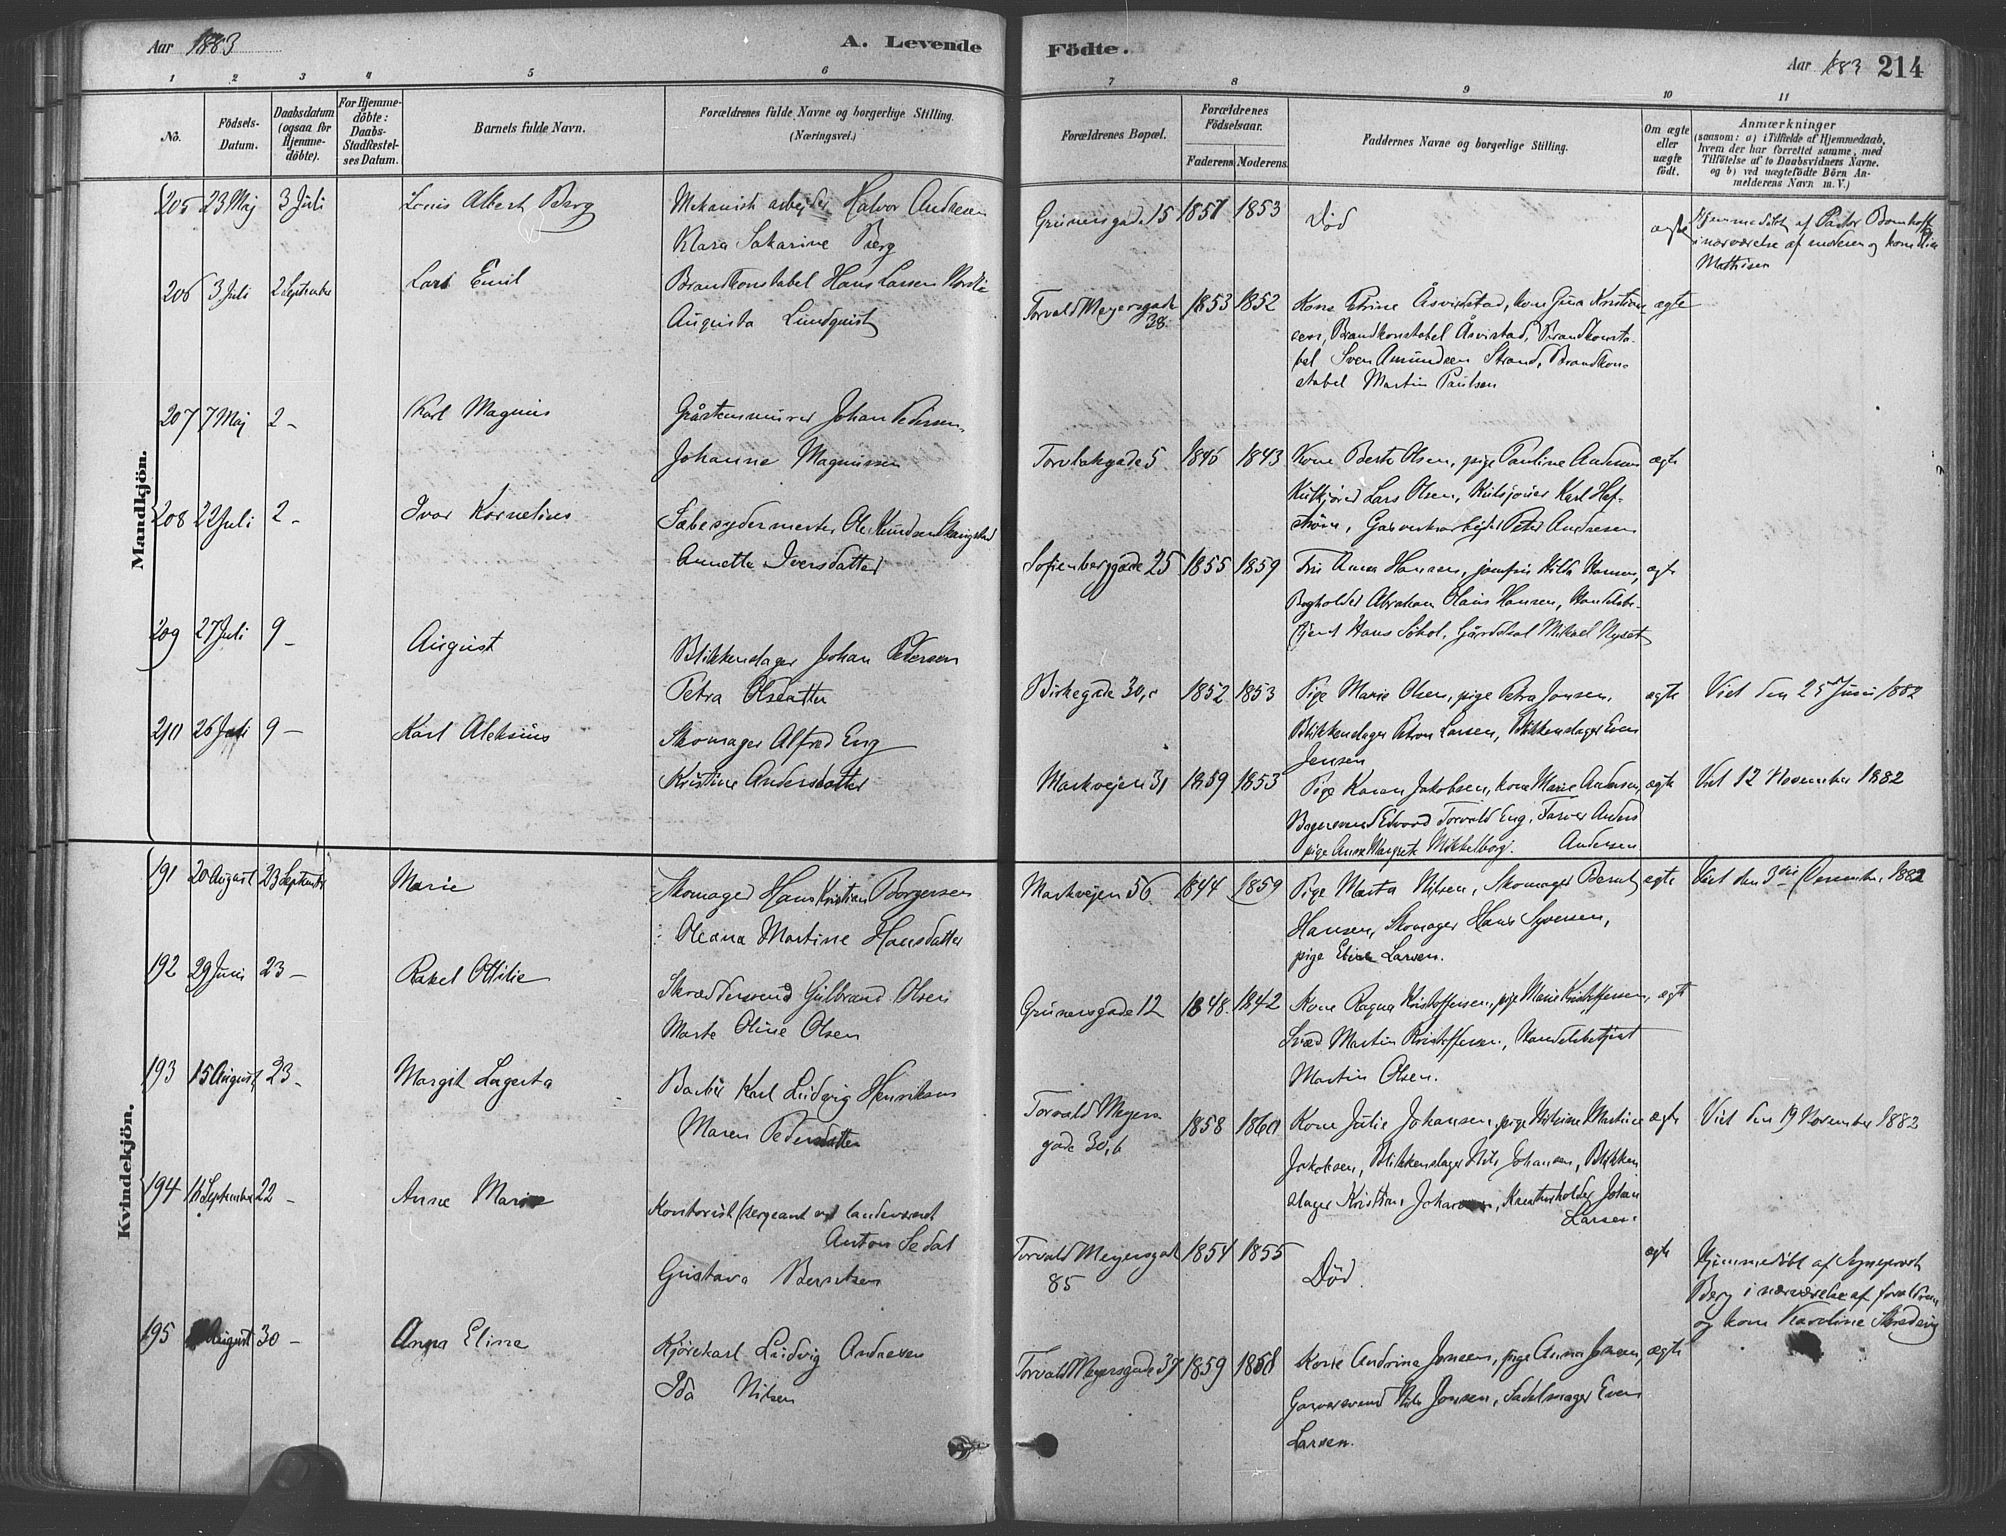 Aar 1883
A. Levende
Födte.
Aar 1883 214
1 2 3 4 5 6 7 8 9 10 11
No.
Födsels-
Datum.
Daabsdatum
(ogsaa for
Hjemme-
döbte).
For Hjemme-
döbte:
Daabs-
Stadfæstel-
ses Datum.
Barnets fulde Navn.
Forældrenes fulde Navne og borgerlige Stilling.
(Næringsvei.)
Forældrenes Bopæl.
Forældrenes
Födselsaar.
Faderens. Moderens.
Faddernes Navne og borgerlige Stilling.
Om ægte
eller
uægte
födt.
Anmærkninger
(saasom: a) i Tilfælde af Hjemmedaab,
hvem der har forrettet samme, med
Tilföielse af to Daabsvidners Navne,
og b) ved uægtefödte Börn An-
melderens Navn m. V.)
Mandkjön.
205 23 Maj 3 Juli Louis Albert Berg
Mekanisk arbejder Halvor Andresen
Klara Sakarine Berg
Grünersgade 15 1857 1853 Död ægte
Hjemmedöbt af Pastor Bomhoff
i nærværelse af moderen og kone
Mathisen
206 3 Juli 2 September Lars Emil
Brandkonstabel Hans Larsen
Augusta Lundquist
Torvald Meyersgade
38. 1853 1852
Kone Petrine Åsvidstad, kone Gina Kristian
sen, Brandkonstabel Åsvistad, Brandkonsta-
bel Sven Amundsen Strand, Brandkon-
stabel Martin Paulsen
ægte
207 7 Maj 2 - Karl Magnus
Gråstensmurer Johan Pedersen
Johanne Magnussen
Torvbakgade 5 1846 1843
Kone Berte Olsen, pige Pauline Andersen
Kulkjører Lars Olsen, Karl Haf-
strøm, Gasverksarbejder Peter Andresen
ægte
208 22 Juli 2 - Ivar Kornelius
Sæbesydermester Ole Knudsen
Annette Iversdatter
Sofienberggade 25 1855 1859
Fru Anna Hansen, jomfru Hilda Hansen,
Bogholder Abraham Olaus Hansen, Handelsbe-
tjent Hans Sokol, Mikael
ægte
209 27 Juli 9 - August
Blikkenslager Johan Pedersen
Petra Olsdatter
Birkegade 30,c 1852 1853
Pige Marie Olsen, pige Petra Jonsen,
Blikkenslager Petron Larsen, Blikkenslager Even
Jensen
ægte
Viet den 25 Juni 1882
210 26 Juli 9 - Karl Aleksius
Skomager Alfred Eng
Kristine Andersdatter
Markvejen 31 1859 1853
Pige Karen Jakobsen, kone Marie Andersen,
Bagersvend Edvard Torvald Eng, Farver Anders
pige Anne Margrete Mikkelborg. Andersen
ægte
Viet 12 November 1882
Kvindekjön.
191 20 August 23 September Marie
Skomager Hans Kristian Borgersen
Oleana Martine Hansdatter
Markvejen 56 1844 1859
Pige Marta Nilsen, Skomager Bernt
Hansen, Skomager Hans Syversen,
pige Eline Larsen.
ægte
Viet den 3die December 1882
192 29 Juni 23 - Rakel Ottilie
Skræddersvend Gulbrand Olsen
Marte Oline Olsen
Grünersgade 12 1848. 1842
Kone Ragna Kristoffersen, pige Marie Kristoffersen,
Svend Martin Kristoffersen, Handelsbetjent
Martin Olsen.
ægte
193 15 August 23 - Margit Lagerta
Barbér Karl Ludvig Henriksen
Maren Pedersdatter
Torvald Meyers
gade 30,b 1858 1860
Kone Julie Johansen, pige Martine
Jakobsen, Blikkenslager Nils Johansen, Blikken
slager Kristian Johansen, Johan
Larsen.
ægte
Viet den 19 November 1882
194 11 September 22 - Anne Marie
Kontorist (sergeant ved landværnet
Anton Sedal
Gustava Berntsen
Torvald Meyersgade
85 1854 1855
Död.
ægte
Hjemmedöbt af Sogneprest
Berg i nærværelse af forældrene
og kone Karoline
195 August 30 - Anna Eline
Kjørekarl Ludvig Andresen
Ida Nilsen
Torvald Meyersgade 37 1859 1858
Kone Andrine Jonsen, pige Anna Jonsen,
Garversvend Nils Jonsen, Sadelmager Even
Larsen.
ægte